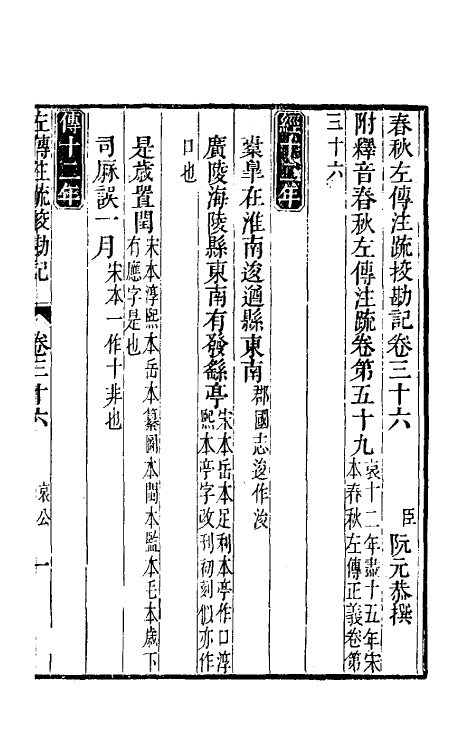 春秋左傳注疏挍勘記卷三十六
臣阮元恭撰
附釋音春秋左傳注疏卷第五十九哀十二年盡十五年宋
本春秋左傳正義卷第
三十六
經十二年
橐臯在淮南逡遒縣東南郡國志逡作浚
廣陵海陵縣東南有發繇亭宋本岳本足利本亭作口淳
熙本亭字改刊初刻似亦作
口也
是歲置閏宋本淳熙本岳本纂圖本閩本監本毛本歲下
有應字是也
司厤誤一月宋本一作十非也
傳十二年
左傳注疏挍勘記 卷三十六 哀公 一